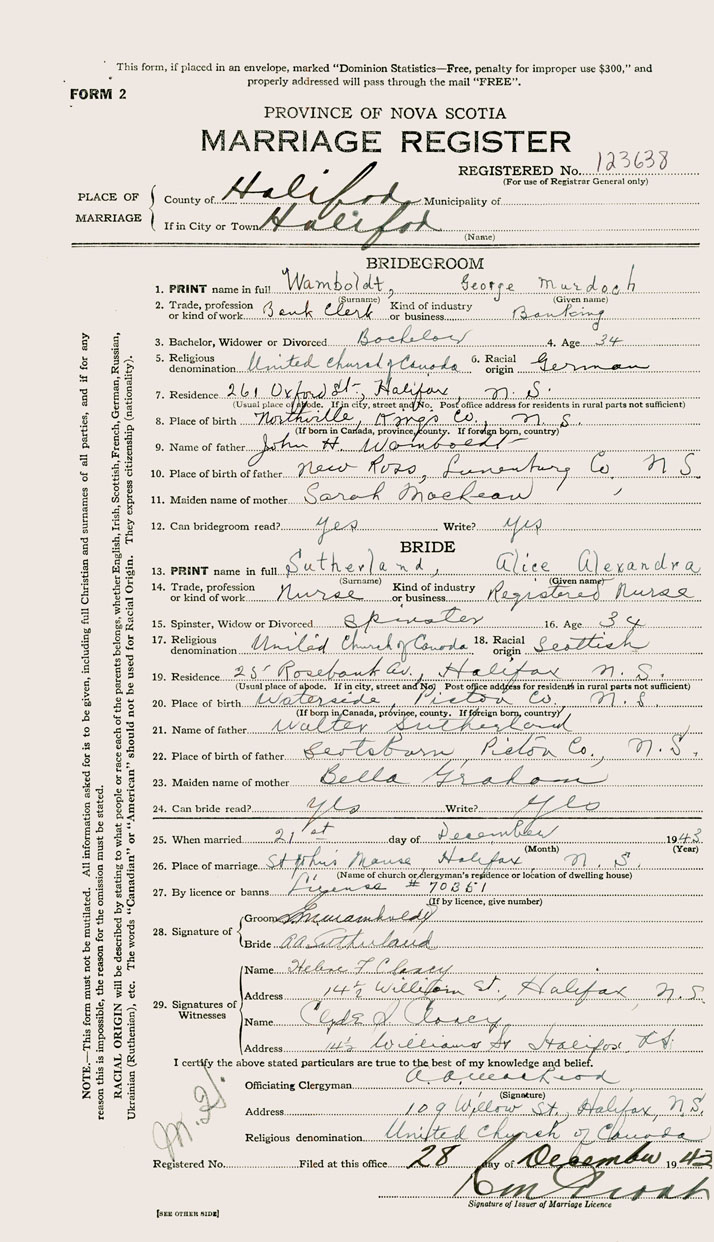 This form, if placed in an envelope, marked “Dominion Statistics—Free, penalty for improper use $300,” and
properly addressed will pass through the mail “FREE”.
FORM 2
PROVINCE OF NOVA SCOTIA
MARRIAGE REGISTER
REGISTERED No. 123638
(For use of Registrar General only)
PLACE OF MARRIAGE
County of Halifax Municipality of
If in City or Town Halifax
(Name)
BRIDEGROOM
1. PRINT name in full Wamboldt, George Murdoch
(Surname) (Given name)
2. Trade, profession or kind of work Bank Clerk Kind of industry or business Banking
3. Bachelor, Widower or Divorced Bachelor 4. Age 34
5. Religious denomination United Church of Canada 6. Racial origin German
7. Residence 261 Oxford St., Halifax, N. S.
(Usual place of abode. If in city, street and No. Post office address for residents in rural parts not sufficient)
8. Place of birth Northville, Kings Co., N. S.
(If born in Canada, province, county. If foreign born, country)
9. Name of father John H. Wamboldt
10. Place of birth of father New Ross, Lunenburg Co N S
11. Maiden name of mother Sarah MacLean
12. Can bridegroom read? yes Write? yes
BRIDE
13. PRINT name in full Sutherland, Alice Alexandra
(Surname) (Given name)
14. Trade, profession or kind of work Nurse Kind of industry or business Registered Nurse
15. Spinster, Widow or Divorced Spinster 16. Age 34
17. Religious denomination United Church of Canada 18. Racial origin Scottish
19. Residence 25 Rosebank Av., Halifax N. S.
(Usual place of abode. If in city, street and No. Post office address for residents in rural parts not sufficient)
20. Place of birth Waterside, Pictou Co. N. S.
(If born in Canada, province, county. If foreign born, country)
21. Name of father Walter Sutherland
22. Place of birth of father Scotsburn, Pictou Co., N. S.
23. Maiden name of mother Bella Graham
24. Can bride read? yes Write? yes
25. When married 21st day of December 1943
(Month) (Year)
26. Place of marriage St John's Manse Halifax, N. S.
(Name of church or clergyman's residence or location of dwelling house)
27. By licence or banns License # 70361
(If by licence, give number)
28. Signature of
Groom G M Wamboldt
Bride A A Sutherland
29. Signatures of Witnesses
Name Helen F
Address 14½ William St, Halifax, N. S.
Name Clyde
Address 14½ William St Halifax, N.S.
I certify the above stated particulars are true to the best of my knowledge and belief.
Officiating Clergyman
(Signature)
Address 109 Willow St., Halifax, N.S.
Religious denomination United Church of Canada
Registered No. Filed at this office 28 day of December 1943
Signature of Issuer of Marriage Licence
[SEE OTHER SIDE]
NOTE.—This form must not be mutilated. All information asked for is to be given, including full Christian and surnames of all parties, and if for any
reason this is impossible, the reason for the omission must be stated.
RACIAL ORIGIN will be described by stating to what people or race each of the parents belongs, whether English, Irish, Scottish, French, German, Russian,
Ukrainian (Ruthenian), etc. The words “Canadian” or “American” should not be used for Racial Origin. They express citizenship (nationality).